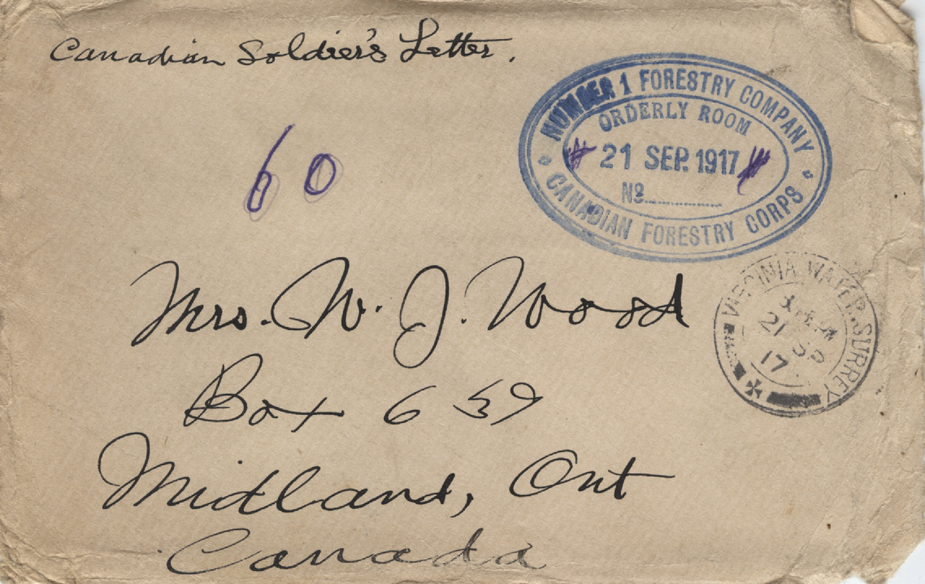 Canadian Soldier's Letter.
NUMBER 1 FORESTRY COMPANY
ORDERLY ROOM
21 SEP. 1917
Nº
CANADIAN FORESTRY CORPS
60
VIRGINIA WATER. SURREY
21 SP
17
Mrs. W. J. Wood
Box 639
Midland, Ont
Canada